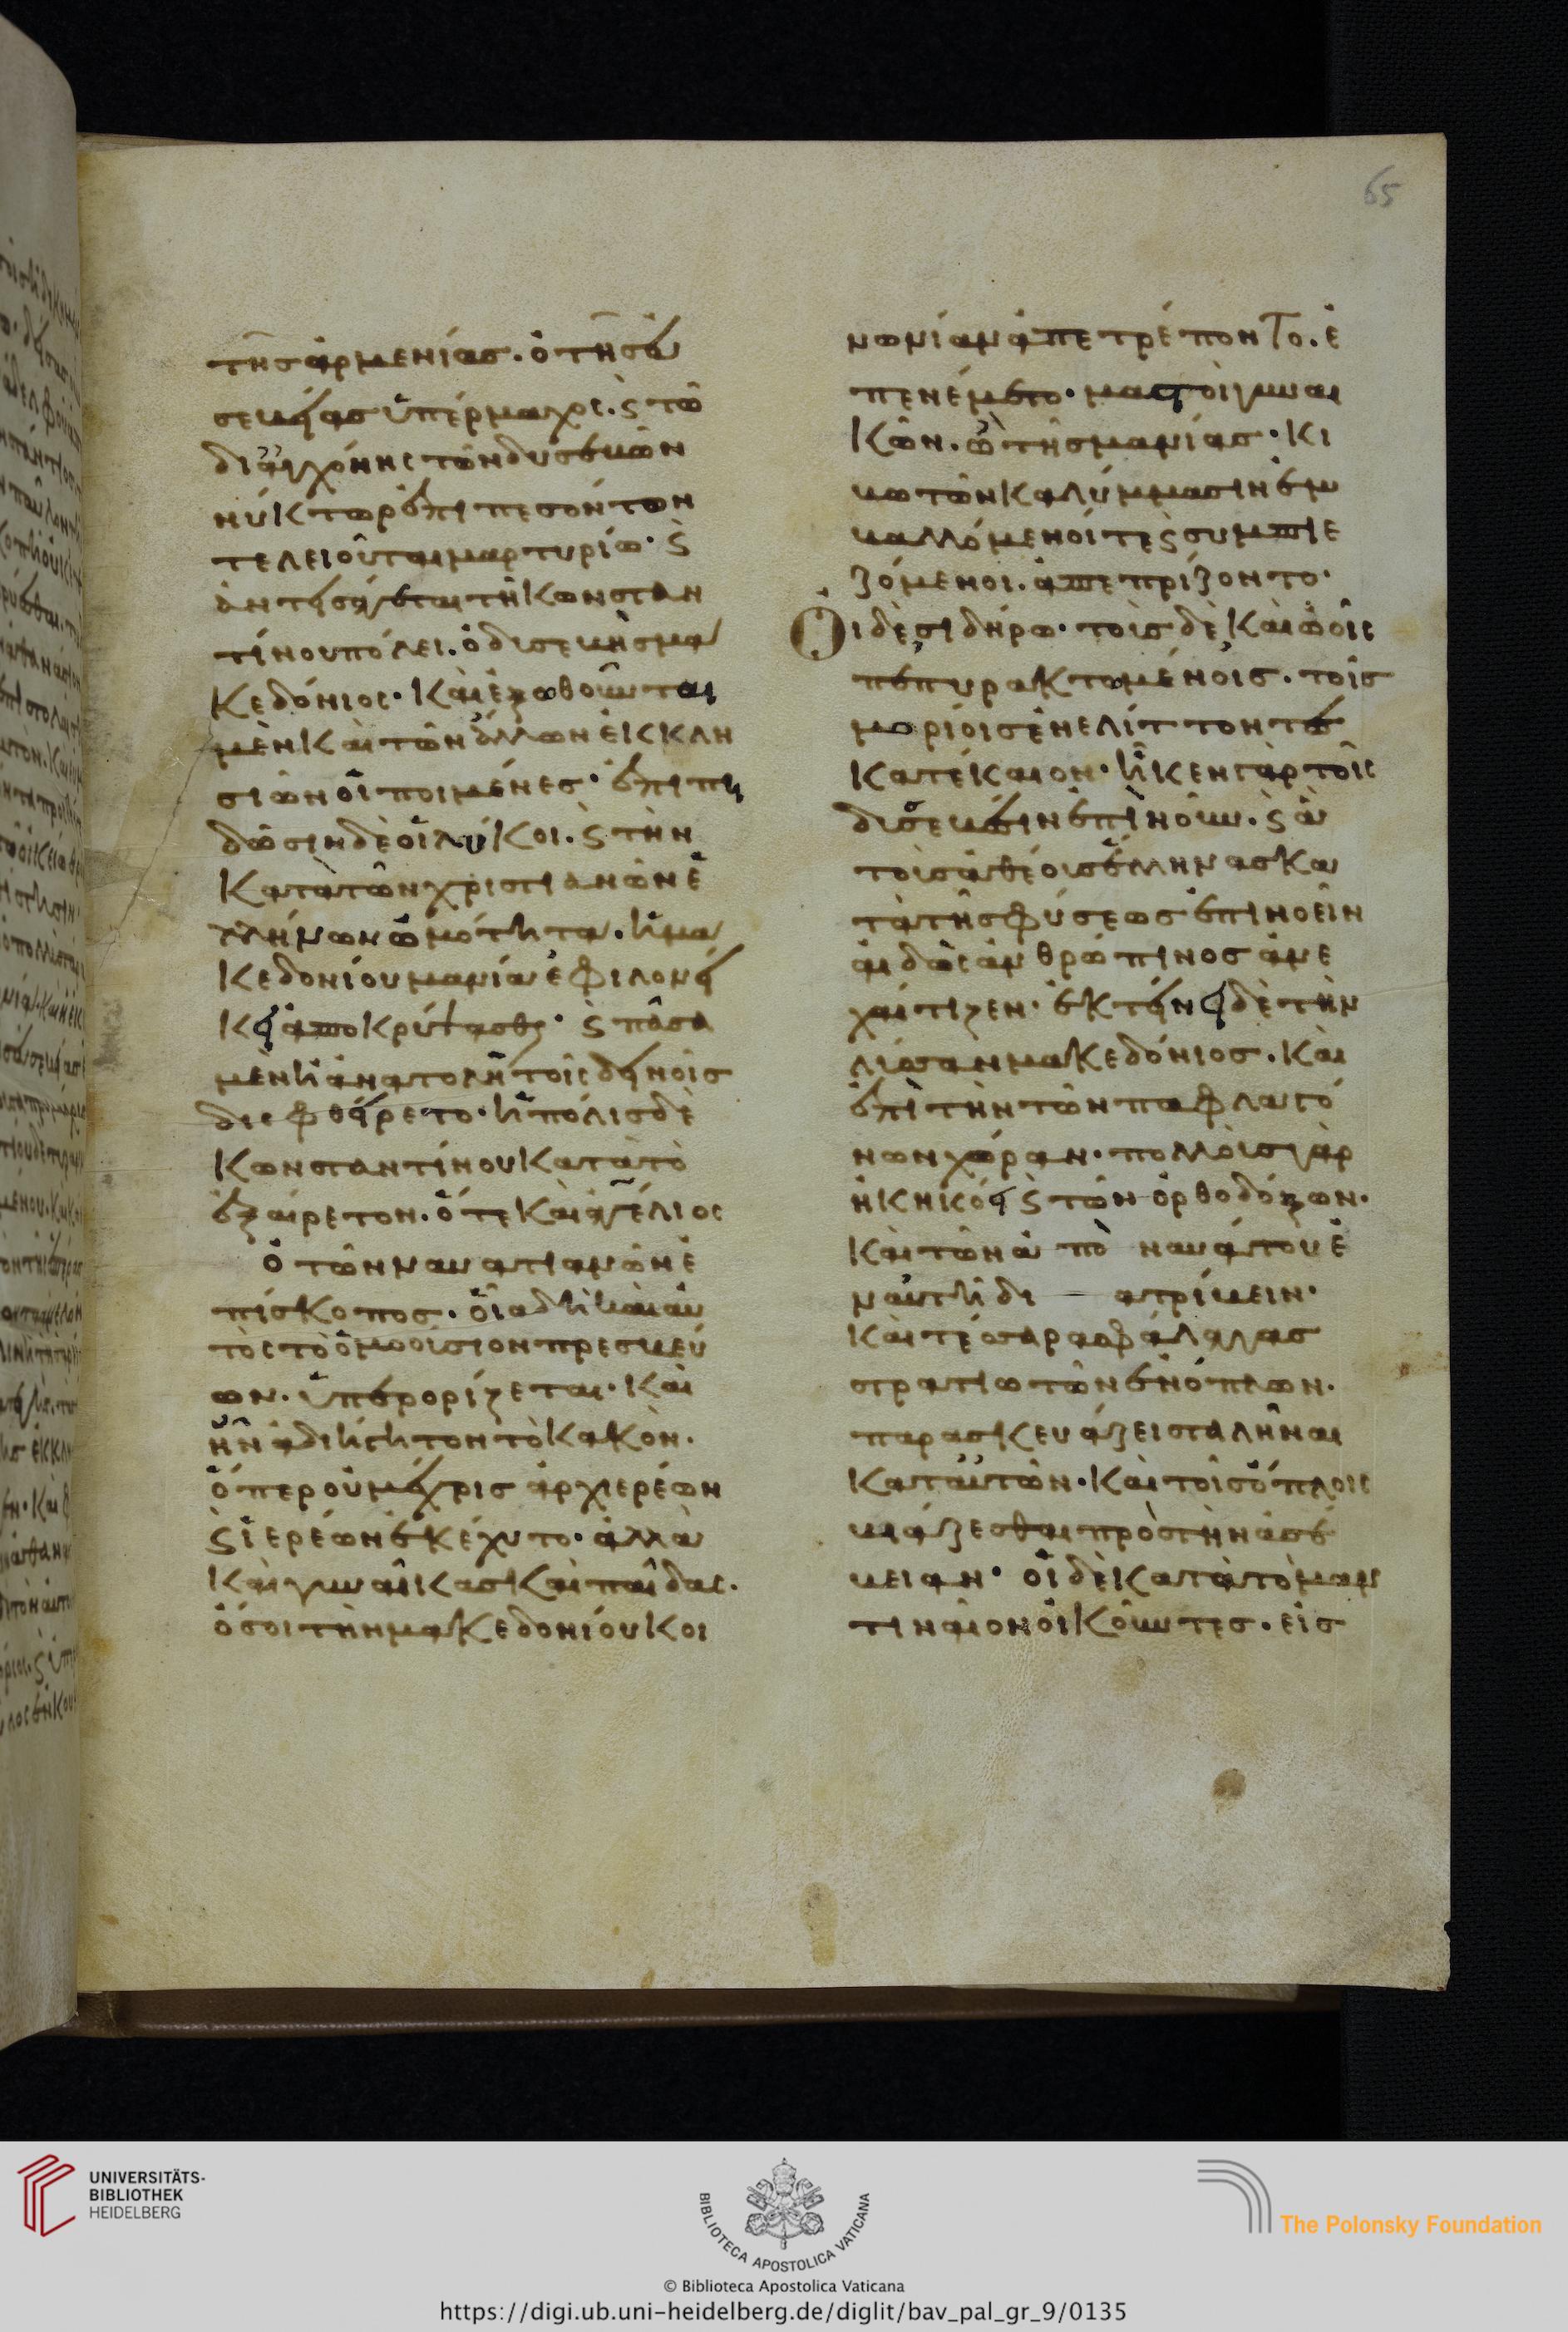 65
τῆς ἀρμενίας. ὁ τῆς ἀ
σεβείας ὑπέρμαχος. ϛ τῶ
δι ἀγχόνης τῶν δυσσεβῶν
νύκτωρ ἐπιπεσόντων
τελειοῦται μαρτυρίω· ϛ
ἀντεισάγεται τῆ κωνσταν
τίνου πόλει. ὁ δυσεβὴς μα
κεδόνιος· καὶ ἐξωθοῦνται
μὲν καὶ τῶν ἄλλων ἐκκλη
σιῶν οἱ ποιμένες· ἐπιπη
δῶσιν δὲ οἱ λύκοι. ϛ τὴν
κατὰ τῶν χριστιανῶν ἑ
λλήνων ὠμότητα. ἡ μα
κεδονίου μανία ἐφιλονεί
κει ἀποκρύψασθαι· ϛ πᾶσα
μὲν ἡ ἀνατολὴ τοῖς δεινοῖς
διεφθείρετο· ἡ πόλις δὲ
κωνσταντίνου κατὰ τὸ
ἐξαίρετον. ὅτε καὶ ἀγέλιος
ὁ τῶν ναυατιανῶν ἐ
πίσκοπος. οἷα δὴ καὶ αὐ
τὸς τὸ ὁμοούσιον πρεσβεύ
ων. ὑπερορίζεται. καὶ
ἦν ἀδιήγητον τὸ κακὸν.
ὅπερ οὐ μέχρις ἀρχιερέων
ϛ ἱερέων ἐκέχυτο· ἀλλὰ
καὶ γυναῖκας καὶ παῖδας.
ὅσοι τὴν μακεδονίου κοι
νωνίαν ἀπετρέποντο. ἐ
πενέμετο· μαστοὶ γυναι
κῶν. ὢ τῆς μανίας· κι
βωτῶν καλύμμασιν ἐμ
βαλλόμενοί τε ϛ συμπιε
ζόμενοι. ἀπεπρίζοντο·
Οἱ δὲ σιδήρω· τοῖς δὲ καὶ ὠοῖς
πεπυρακτωμένοις. τοῖς
μορίοις ἐνελίττοντες
κατέκαιον· ἧκεν γὰρ τοῖς
δυσσεβέσιν ἐπὶ νοῦν. ϛ ἃ
τοῖς ἀθέοις ἕλληνας κα
τὰ τῆς φύσεως ἐπινοεῖν
αἰδὼς ἀνθρώπινος ἀνε
χαίτιζεν· ἐκτείνει δὲ τὴν
λύσσαν μακεδόνιος. καὶ
ἐπὶ τὴν τῶν παφλαγό
νων χώραν· πολλοὺς γὰρ
ἠκηκόει ϛ τῶν ὀρθοδόξων.
καὶ τῶν ἀπὸ ναυάτου ἐ
ν αὐτῆ διατρίβειν·
καὶ τέσσαρας φάλαγγας
στρατιωτῶν ἐνόπλων.
παρασκευάζει σταλῆναι
κατ αὐτῶν· καὶ τοῖς ὅπλοις
βιάζεσθαι πρὸς τὴν ἀσέ
βειαν· οἱ δὲ κατὰ τὸ μαν
τίναιον οἰκοῦντες. εἰς
UNIVERSITÄTS-
BIBLIOTHEK
HEIDELBERG
BIBLIOTECA APOSTOLICA VATICANA
The Polonsky Foundation
© Biblioteca Apostolica Vaticana
https://digi.ub.uni-heidelberg.de/diglit/bav_pal_gr_9/0135